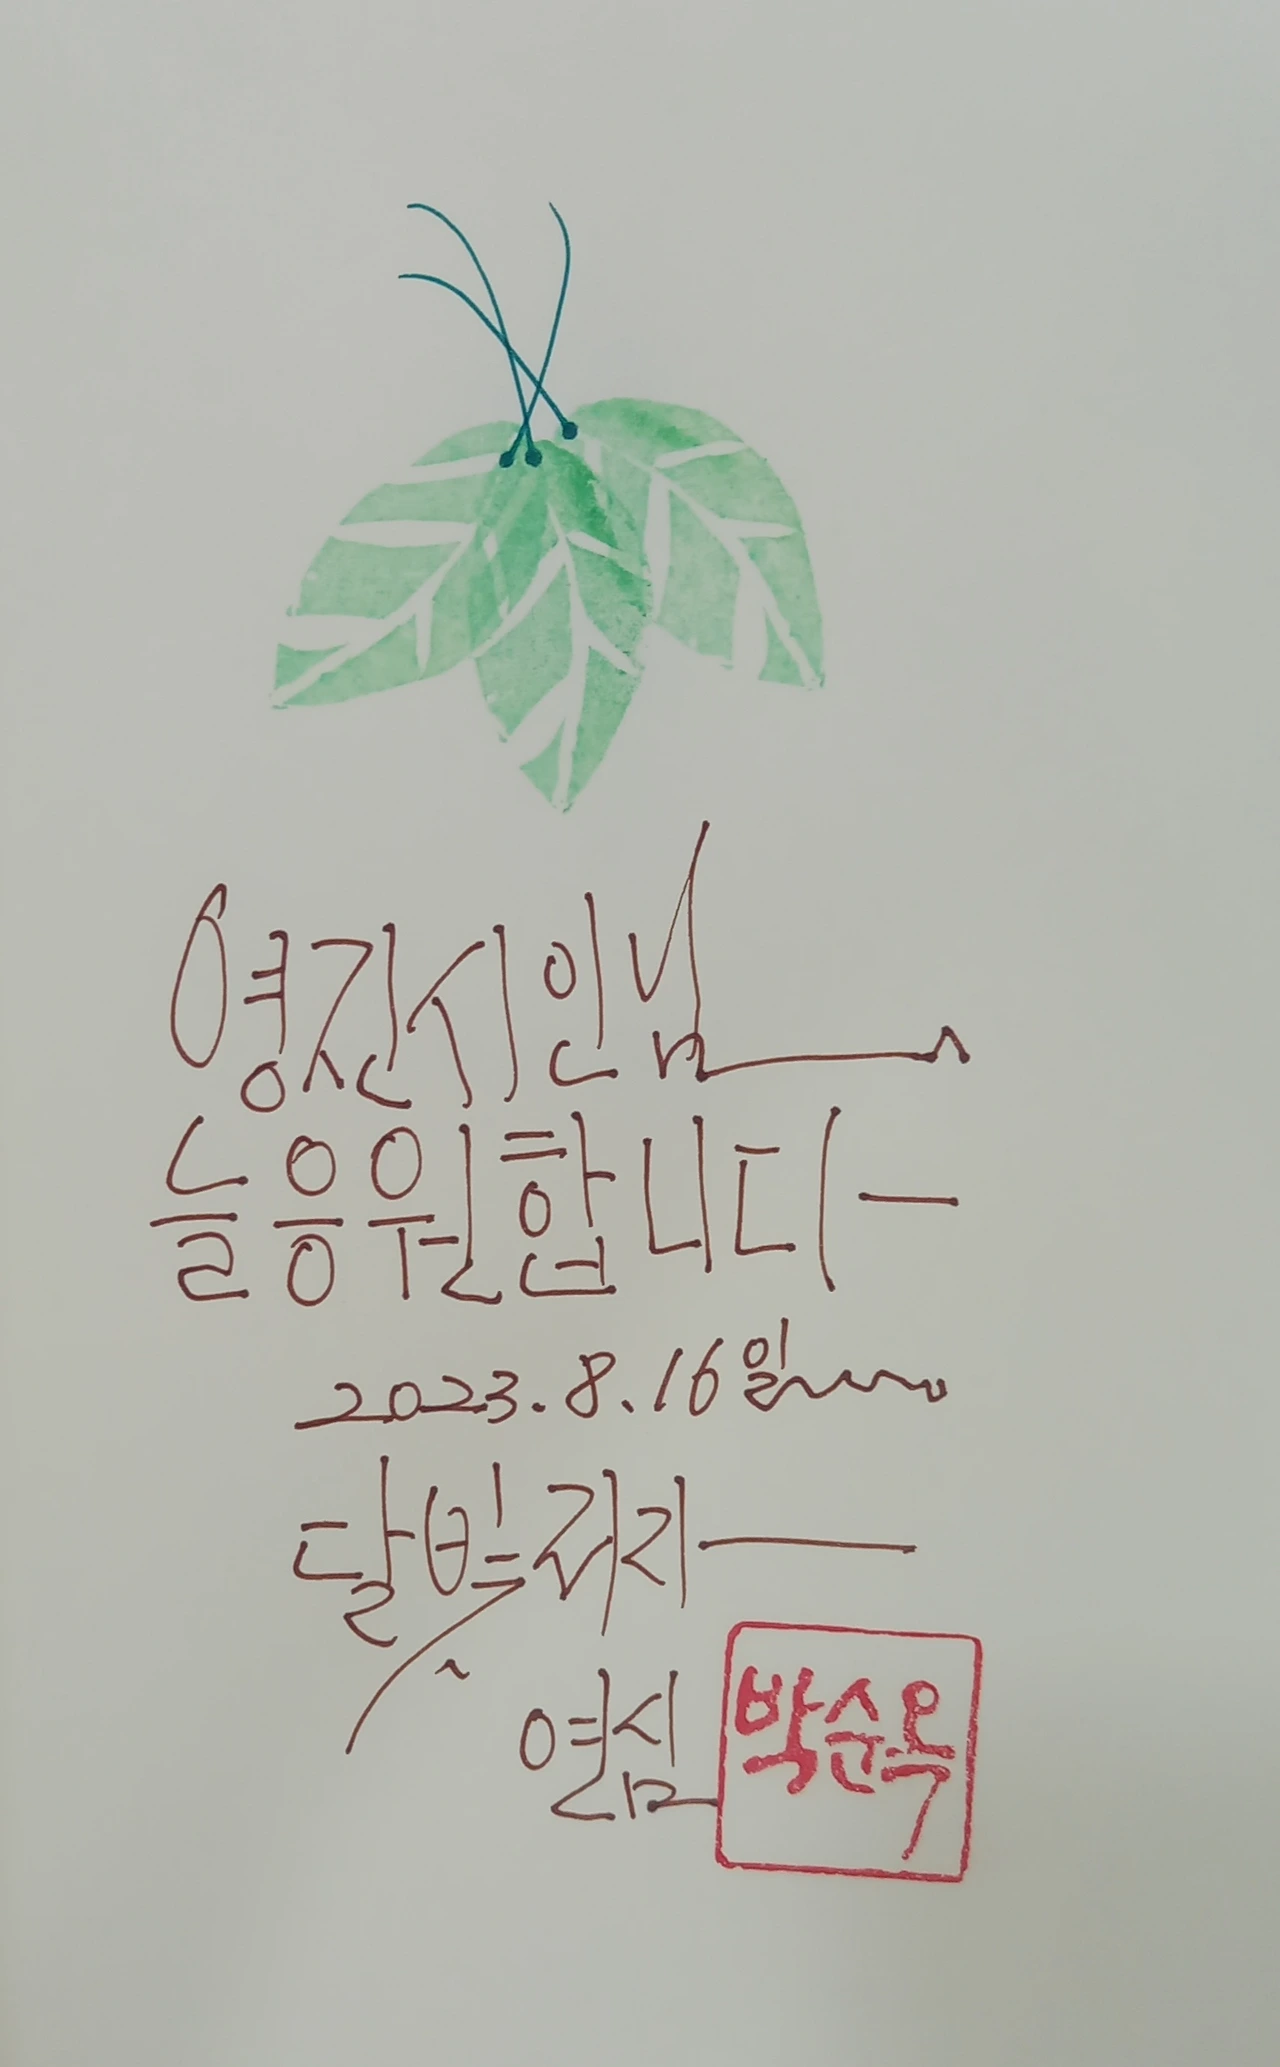 영진시인님
늘 응원합니다
2023.8.16일
달빛자리
연심
박순옥